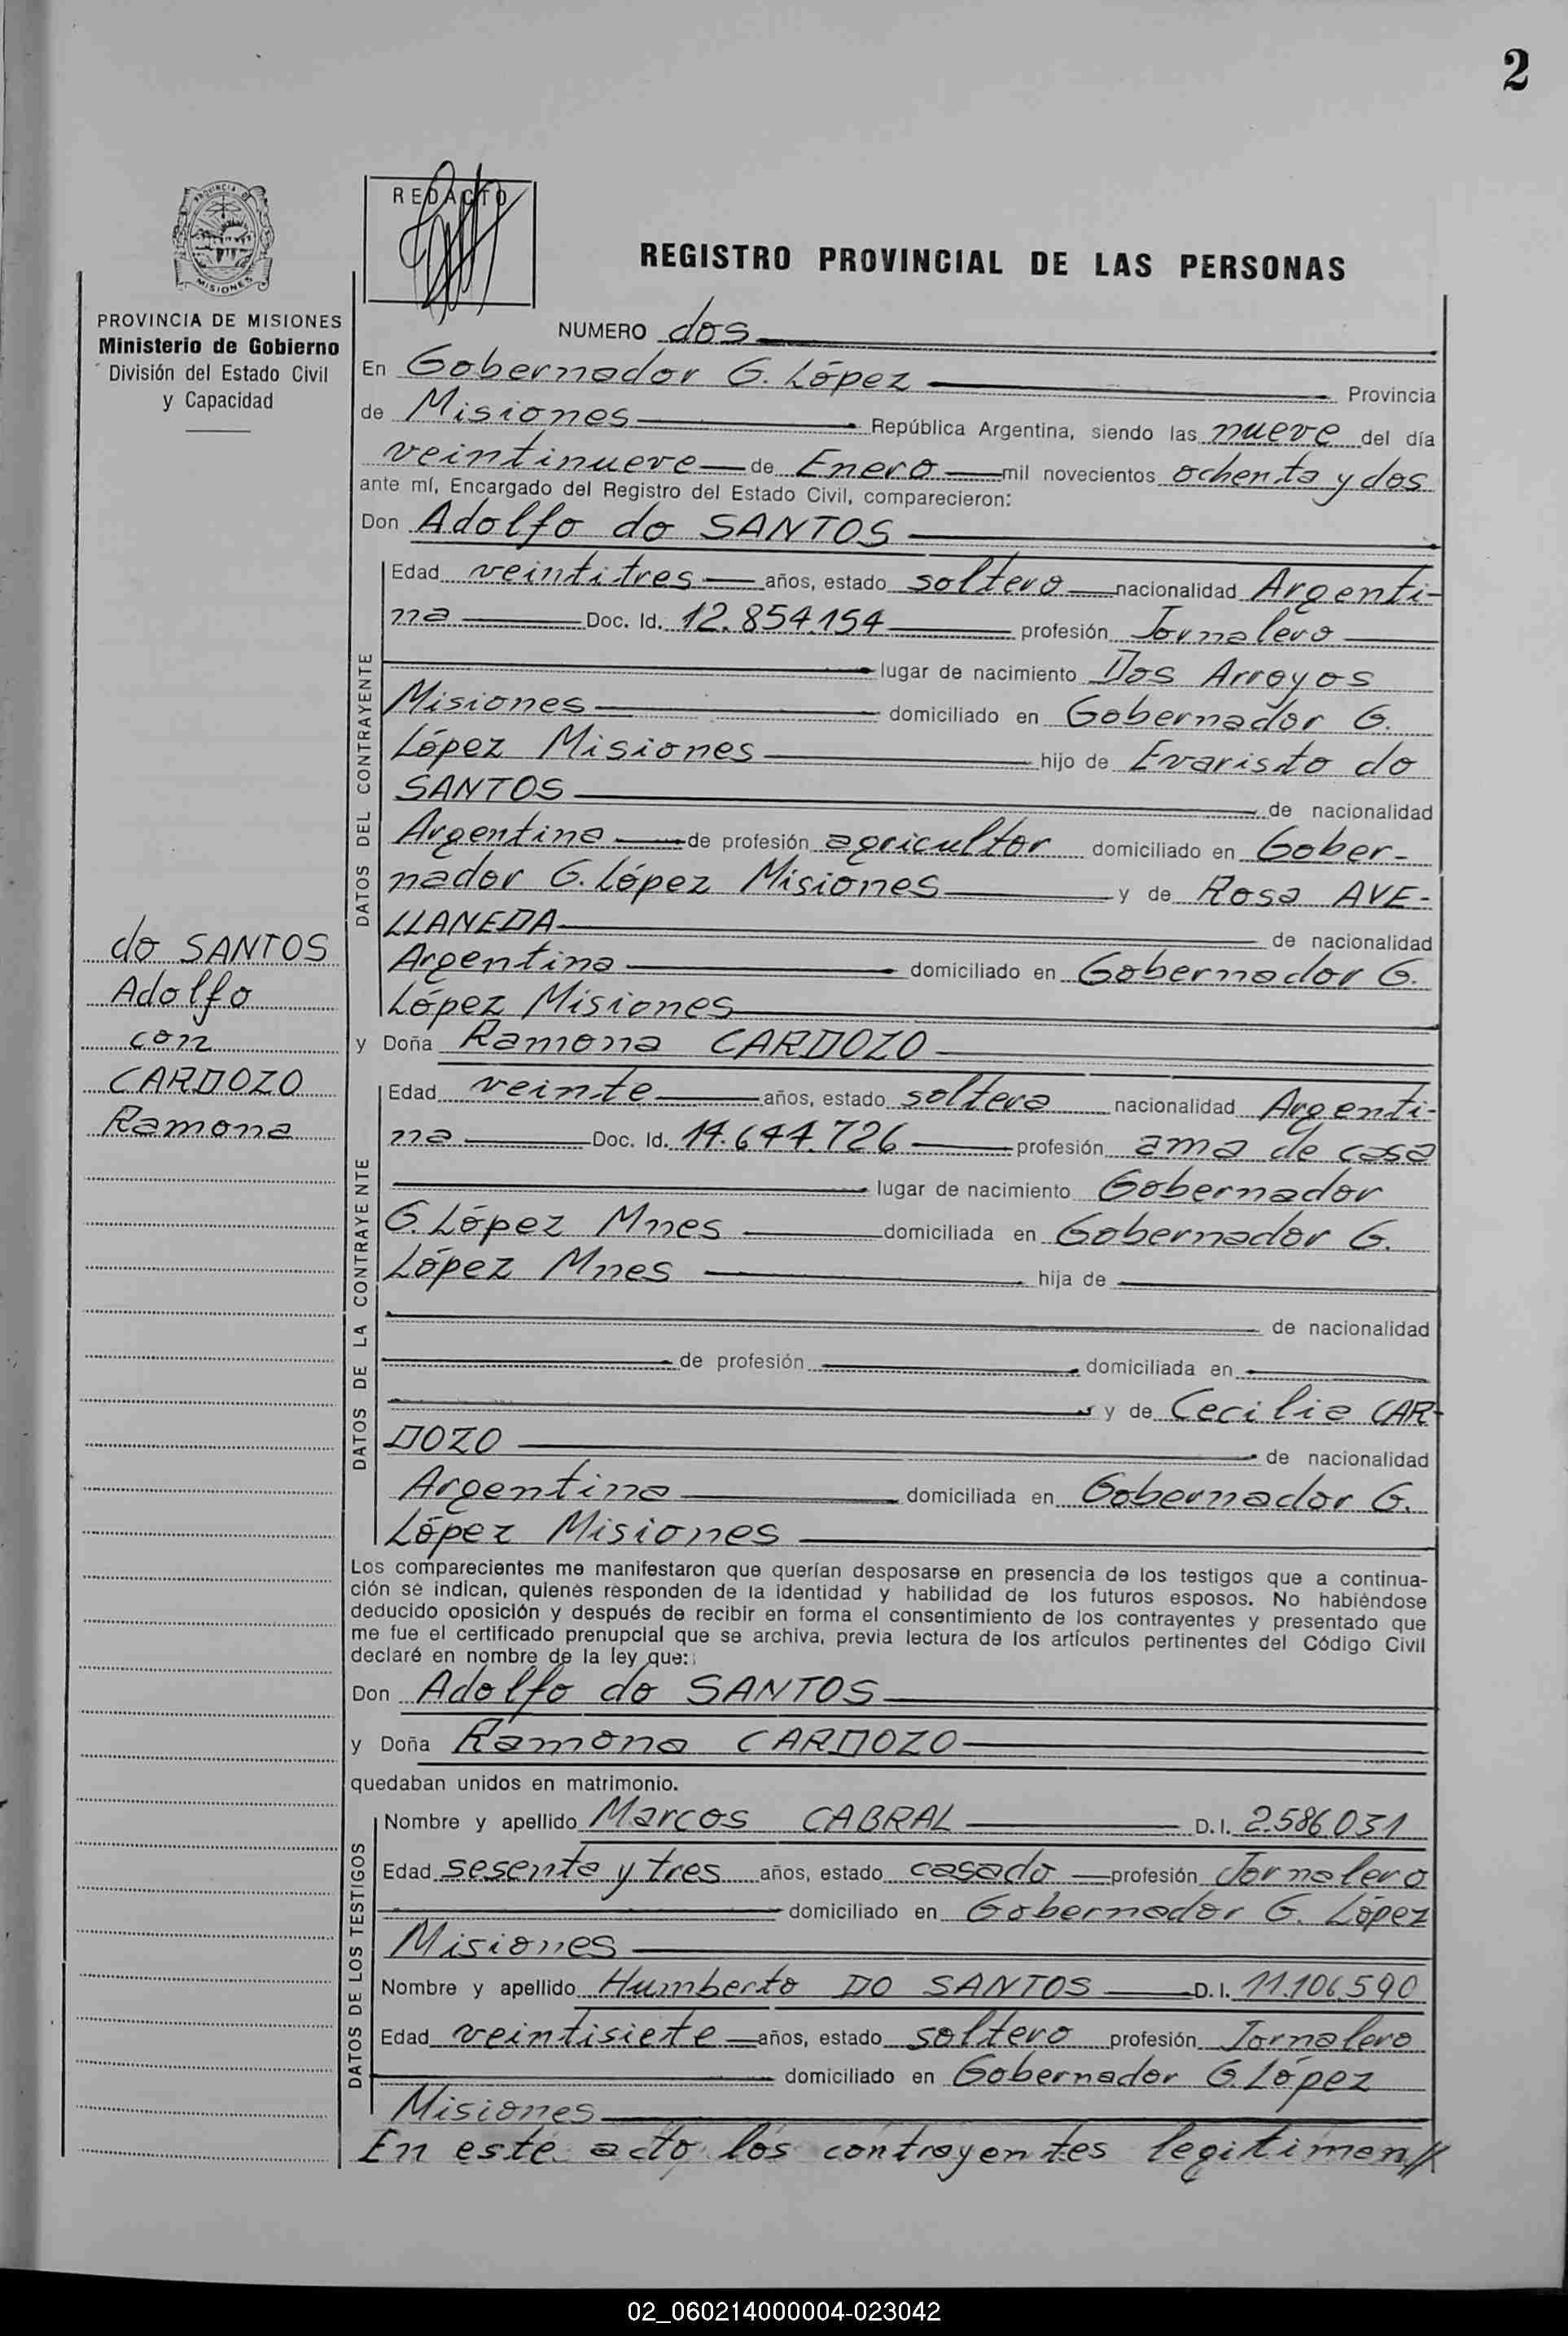 2
PROVINCIA DE
MISIONES
REDACTO
REGISTRO PROVINCIAL DE LAS PERSONAS
PROVINCIA DE MISIONES
Ministerio de Gobierno
División del Estado Civil
y Capacidad
NUMERO dos
En Gobernador G. López Provincia
de Misiones República Argentina, siendo las nueve del día
veintinueve de Enero mil novecientos ochenta y dos
ante mí, Encargado del Registro del Estado Civil, comparecieron:
Don Adolfo do SANTOS
DATOS DEL CONTRAYENTE
Edad veintitres años, estado soltero nacionalidad Argenti-
na Doc. Id. 12.854.154 profesión Jornalero
lugar de nacimiento Dos Arroyos
Misiones domiciliado en Gobernador G.
López Misiones hijo de Evaristo do
SANTOS de nacionalidad
Argentina de profesión agricultor domiciliado en Gober-
nador G. López Misiones y de Rosa AVE-
LLANEDA de nacionalidad
Argentina domiciliado en Gobernador G.
López Misiones
do SANTOS
Adolfo
con
CARDOZO
Ramona
y Doña Ramona CARDOZO
DATOS DE LA CONTRAYENTE
Edad veinte años, estado soltera nacionalidad Argenti-
na Doc. Id. 14.644.726 profesión ama de casa
lugar de nacimiento Gobernador
G. López Mnes domiciliada en Gobernador G.
López Mnes hija de
de nacionalidad
de profesión domiciliada en
y de Cecilia CAR-
DOZO de nacionalidad
Argentina domiciliada en Gobernador G.
López Misiones
Los comparecientes me manifestaron que querían desposarse en presencia de los testigos que a continua-
ción se indican, quienes responden de la identidad y habilidad de los futuros esposos. No habiéndose
deducido oposición y después de recibir en forma el consentimiento de los contrayentes y presentado que
me fue el certificado prenupcial que se archiva, previa lectura de los artículos pertinentes del Código Civil
declaré en nombre de la ley que:
Don Adolfo do SANTOS
y Doña Ramona CARDOZO
quedaban unidos en matrimonio.
DATOS DE LOS TESTIGOS
Nombre y apellido Marcos CABRAL D.I. 2.586.031
Edad sesenta y tres años, estado casado profesión Jornalero
domiciliado en Gobernador G. López
Misiones
Nombre y apellido Humberto DO SANTOS D.I. 11.106.590
Edad veintisiete años, estado soltero profesión Jornalero
domiciliado en Gobernador G. López
Misiones
En este acto los contrayentes legitiman//
02_060214000004-023042